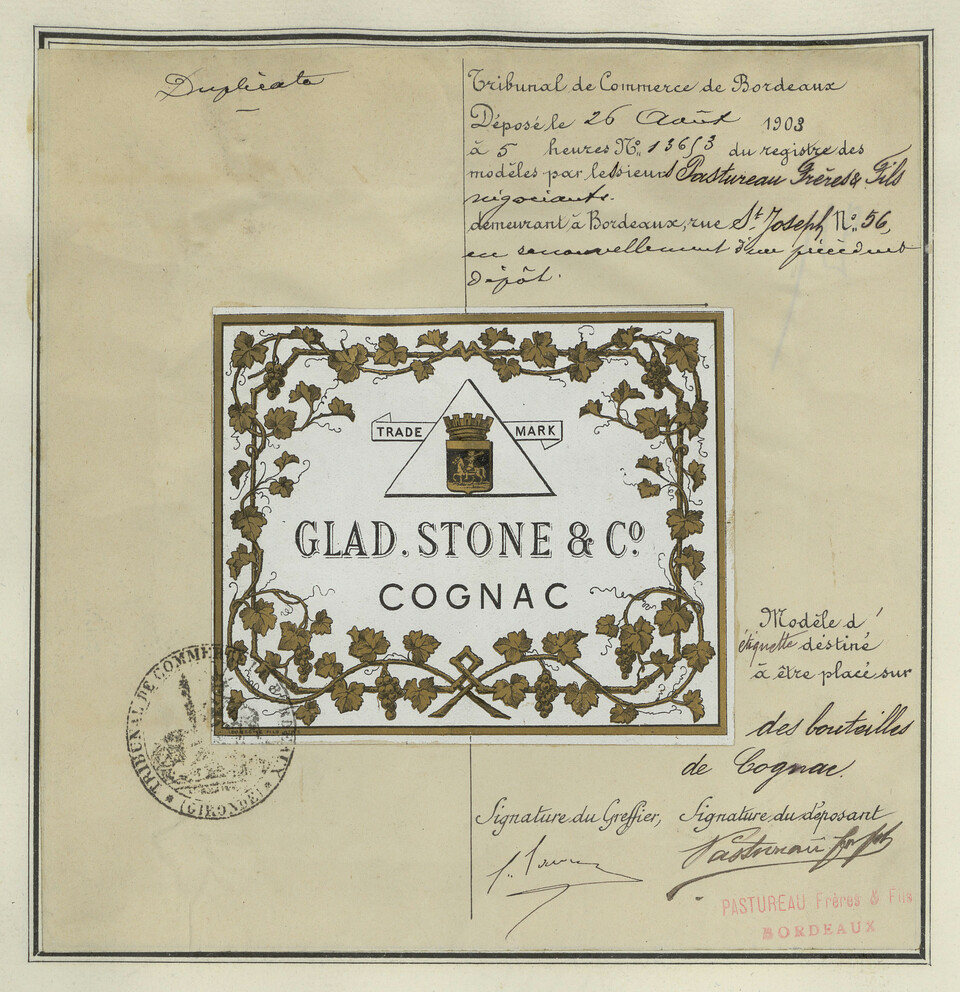 Duplicata
Tribunal de Commerce de Bordeaux
Déposé le 26 Août 1903
à 5 heures No. 13653 du registre des
modèles par le sieurs Pastureau Frères & Fils
négociants.
demeurant à Bordeaux, rue St. Joseph No. 56,
en renouvellement d'un précédent
dépôt.
TRADE MARK
GLAD. STONE & Co.
COGNAC
Modèle d'
étiquette destiné
à être placé sur
des bouteilles
de Cognac.
TRIBUNAL DE COMMERCE DE BORDEAUX
(GIRONDE)
Signature du Greffier, Signature du déposant
Pastureau
PASTUREAU Frères & Fils
BORDEAUX